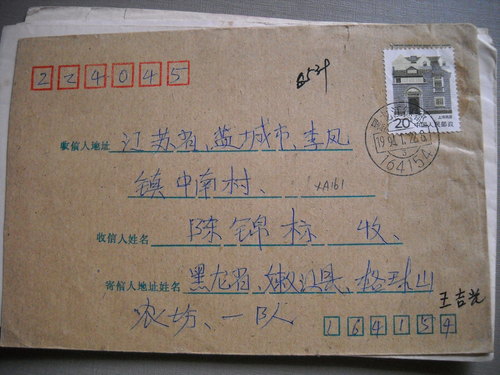 224045
6539
20
中国人民邮政
上海民居
收信人地址 江苏省、盐城市、李风
镇中南村、 XA161
164154
收信人姓名 陈锦标 收、
寄信人地址姓名 黑龙省、嫩江县、格球山
王吉光
农坊、一队
164154